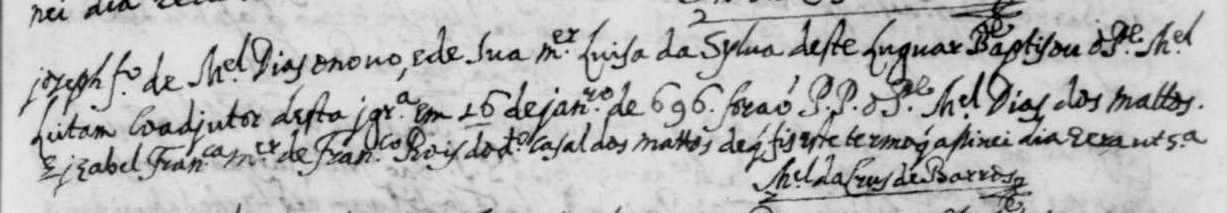 nei dia
joseph f.º de M.el Dias o novo, e de sua m.er Luisa da Sylva deste Luguar Baptisou o P.e M.el
Leitam Coadjutor desta jgr.a em 26 de jan.ro de 696. foraó P.P. o P.e M.el Dias dos mattos.
e jzabel Fran.ca m.er de Fran.co Roĩs do d.º casal dos mattos de q̃ fis este termo q̃ asinei dia e era ut s.a
M.el da Crus de Barros